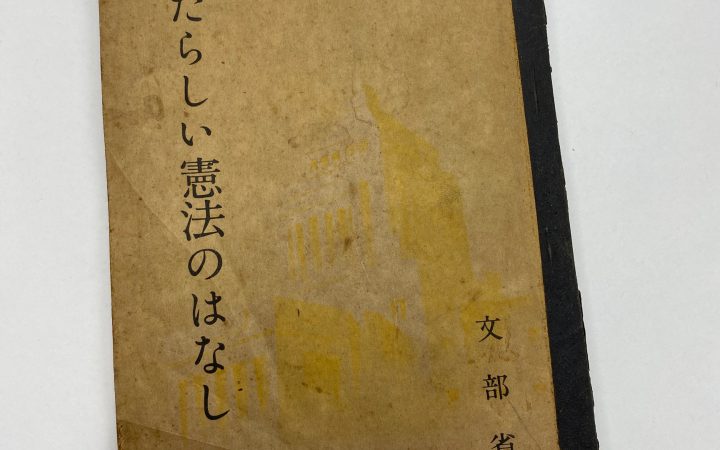 たらしい憲法のはなし
文部省